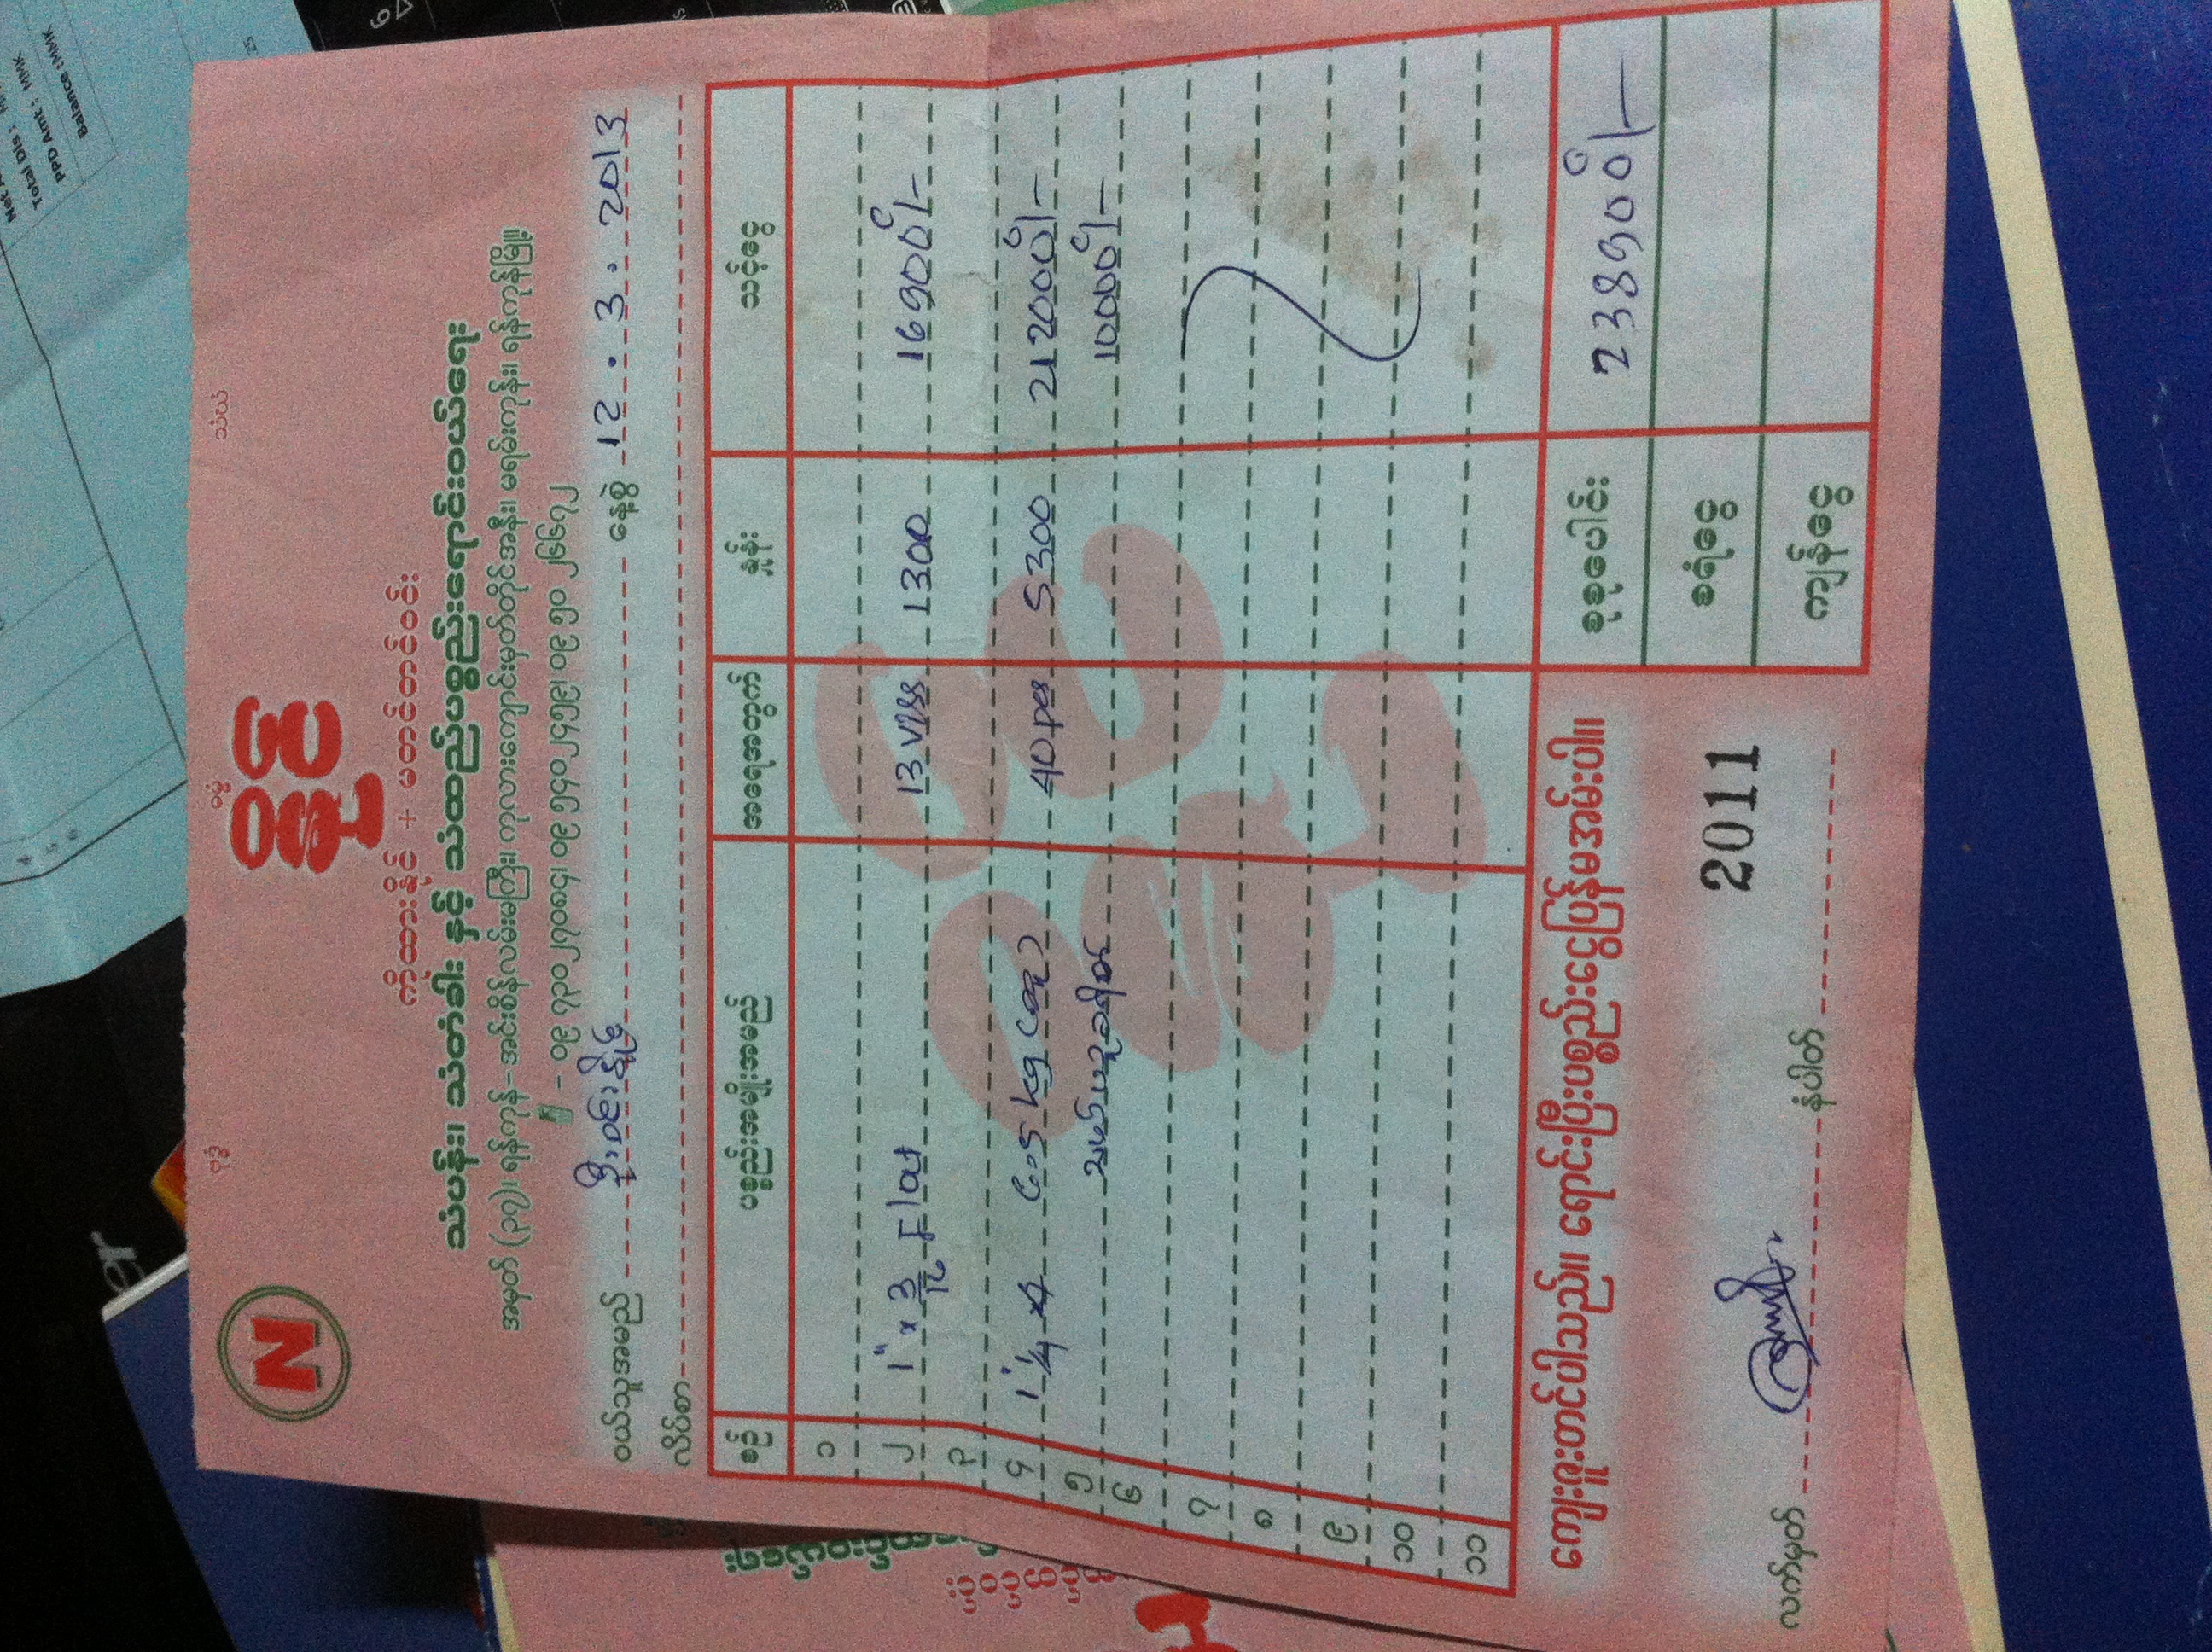 Net
Total Dis :
PPD Amt : MMK
Balance :MMK
4
5
6
er
25
ဗုဒ္ဓံ ဓမ္မံ သံဃံ
N
နိုင်
ကိုထားနိုင် + မတင်တင်ဝင်း
သံပန်း၊ သံတံခါး နှင့် သံထည်ပစ္စည်းရောင်းဝယ်ရေး
အမှတ် (၃၇)၊ ရန်ကုန်-အင်းစိန်လမ်းမကြီး၊ ကုလားကျောင်းမှတ်တိုင်အနီး၊ မရမ်းကုန်း၊ ရန်ကုန်မြို့။
- ၀၉ ၇၃၀၂၇၀၈၄၊ ၀၉ ၅၄၀၂၄၅၉၊ ၀၉ ၅၀ ၂၆၆၇၂
ဝယ်သူအမည် ဦးဝင်းနိုင် နေ့စွဲ 12 . 3 . 2013
လိပ်စာ
စဉ် ပစ္စည်းအမျိုးအမည် အရေအတွက် နှုန်း သင့်ငွေ
၁
၂ 1" x 3/16 Flat 13 viss 1300 16900/-
၃
၄ 1 1/4 6.5 kg 40 pcs 5300 212000/-
၅ 10000/-
၆
၇
၈
၉
၁၀
၁၁
ကျေးဇူးတင်ပါသည်။ ရောင်းပြီးပစ္စည်းငွေပြန်မအမ်းပါ။
စုစုပေါင်း 238900/-
စရံငွေ
ကျန်ငွေ
2011
လက်မှတ် နံပါတ်